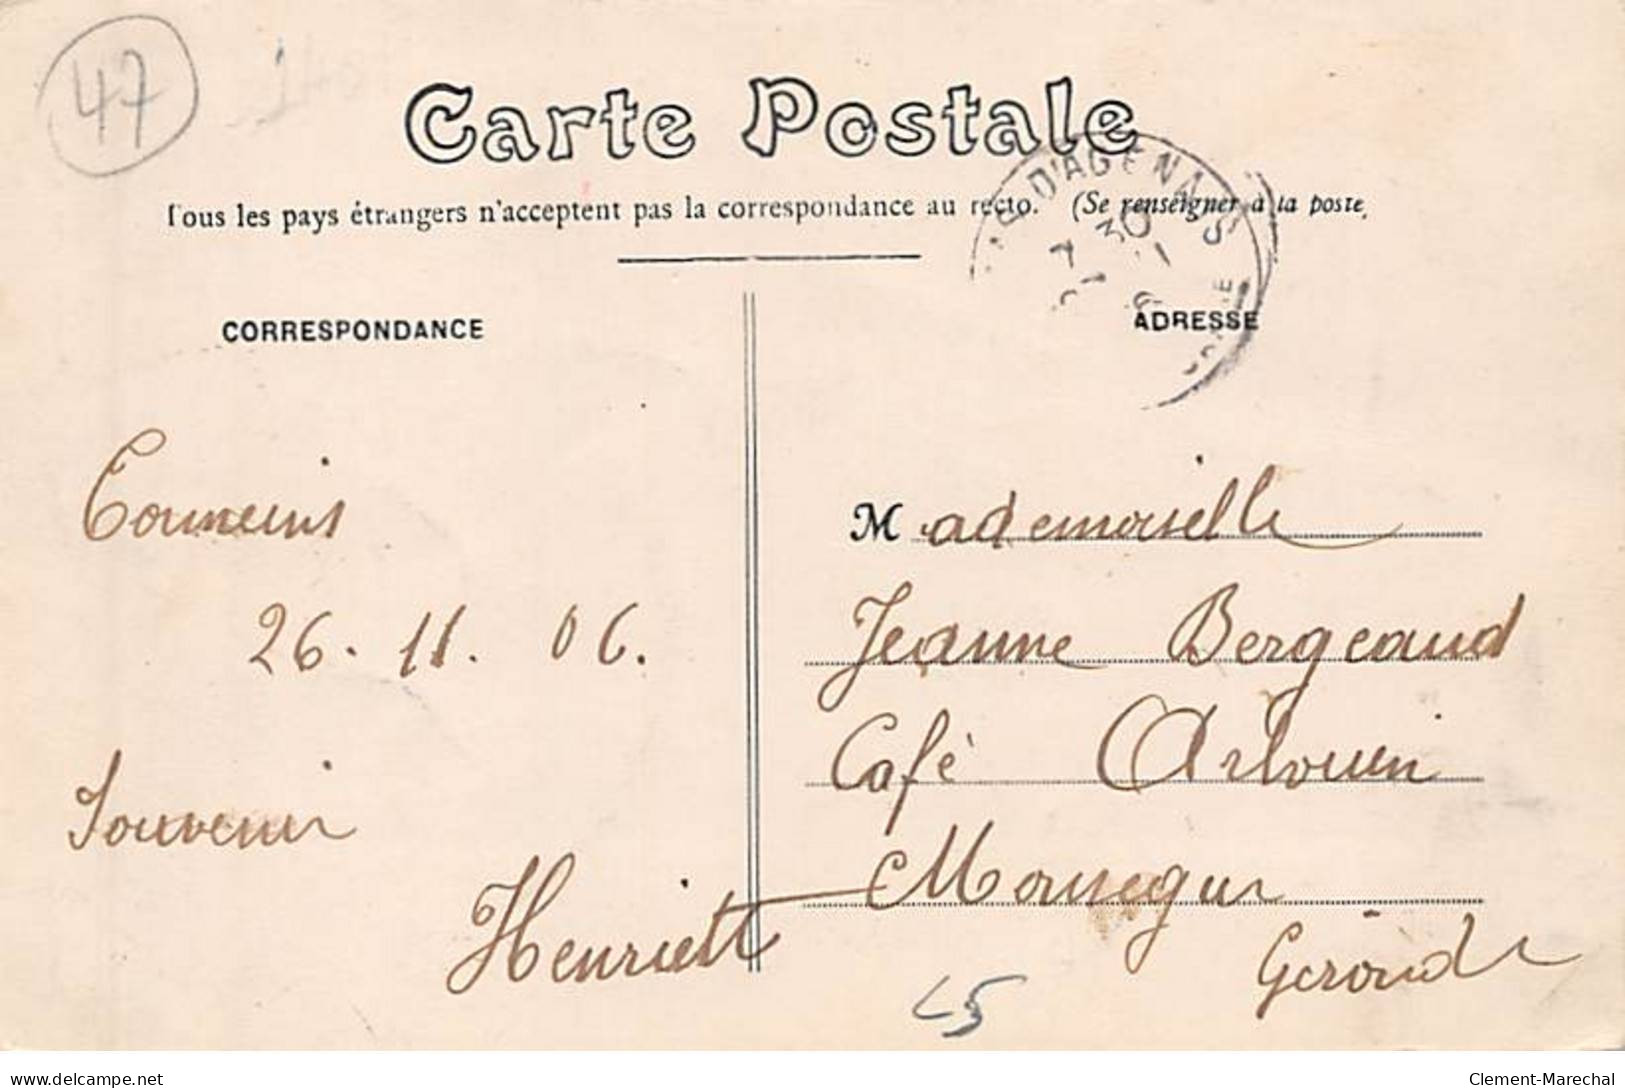 47
Carte Postale
Tous les pays étrangers n'acceptent pas la correspondance au recto. (Se renseigner à la poste,
D'AGENAIS
7 30
CORRESPONDANCE
ADRESSE
Tonneins
26. 11. 06.
Souvenir
Henriette
Mademoiselle
Jeanne Bergeaud
Café
Monsegur
Gironde
delcampe.net
Clement-Marechal